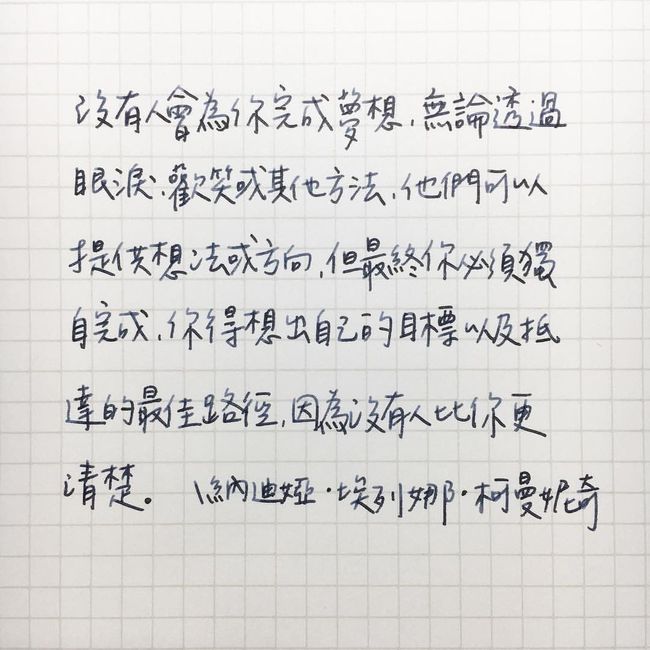 沒有人會為你完成夢想，無論透過
眼淚、歡笑或其他方法，他們可以
提供想法或方向，但最終你必須獨
自完成，你得想出自己的目標以及抵
達的最佳路徑，因為沒有人比你更
清楚。 \納迪婭·埃列娜·柯曼妮奇